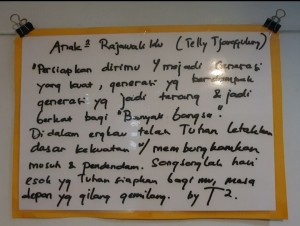 Anak² Rajawali Ku (Telly Tjanggulung)
"Persiapkan dirimu Y menjadi Generasi
yang kuat, generasi yg berdampak
generasi yg jadi terang & jadi
berkat bagi "Banyak bangsa".
Di dalam engkau telah Tuhan letakkan
dasar kekuatan U/ membungkamkan
musuh & pendendam. Songsonglah hari
esok yg Tuhan siapkan bagi mu, masa
depan yg gilang gemilang. by T².